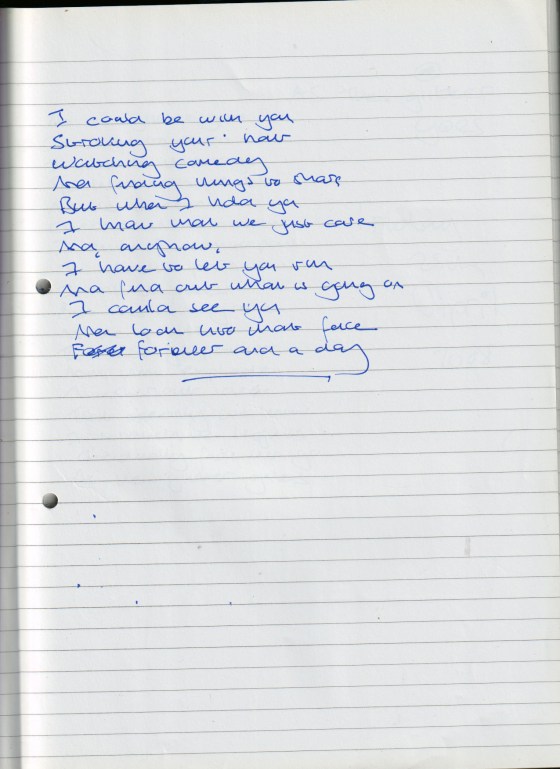 I could be with you
Stroking your hair
Watching comedy
And finding things to share
But when I hold you
I know that we just care
And, anyhow,
I have to let you run
And find out what is going on
I could see you
And look into that face
forever and a day